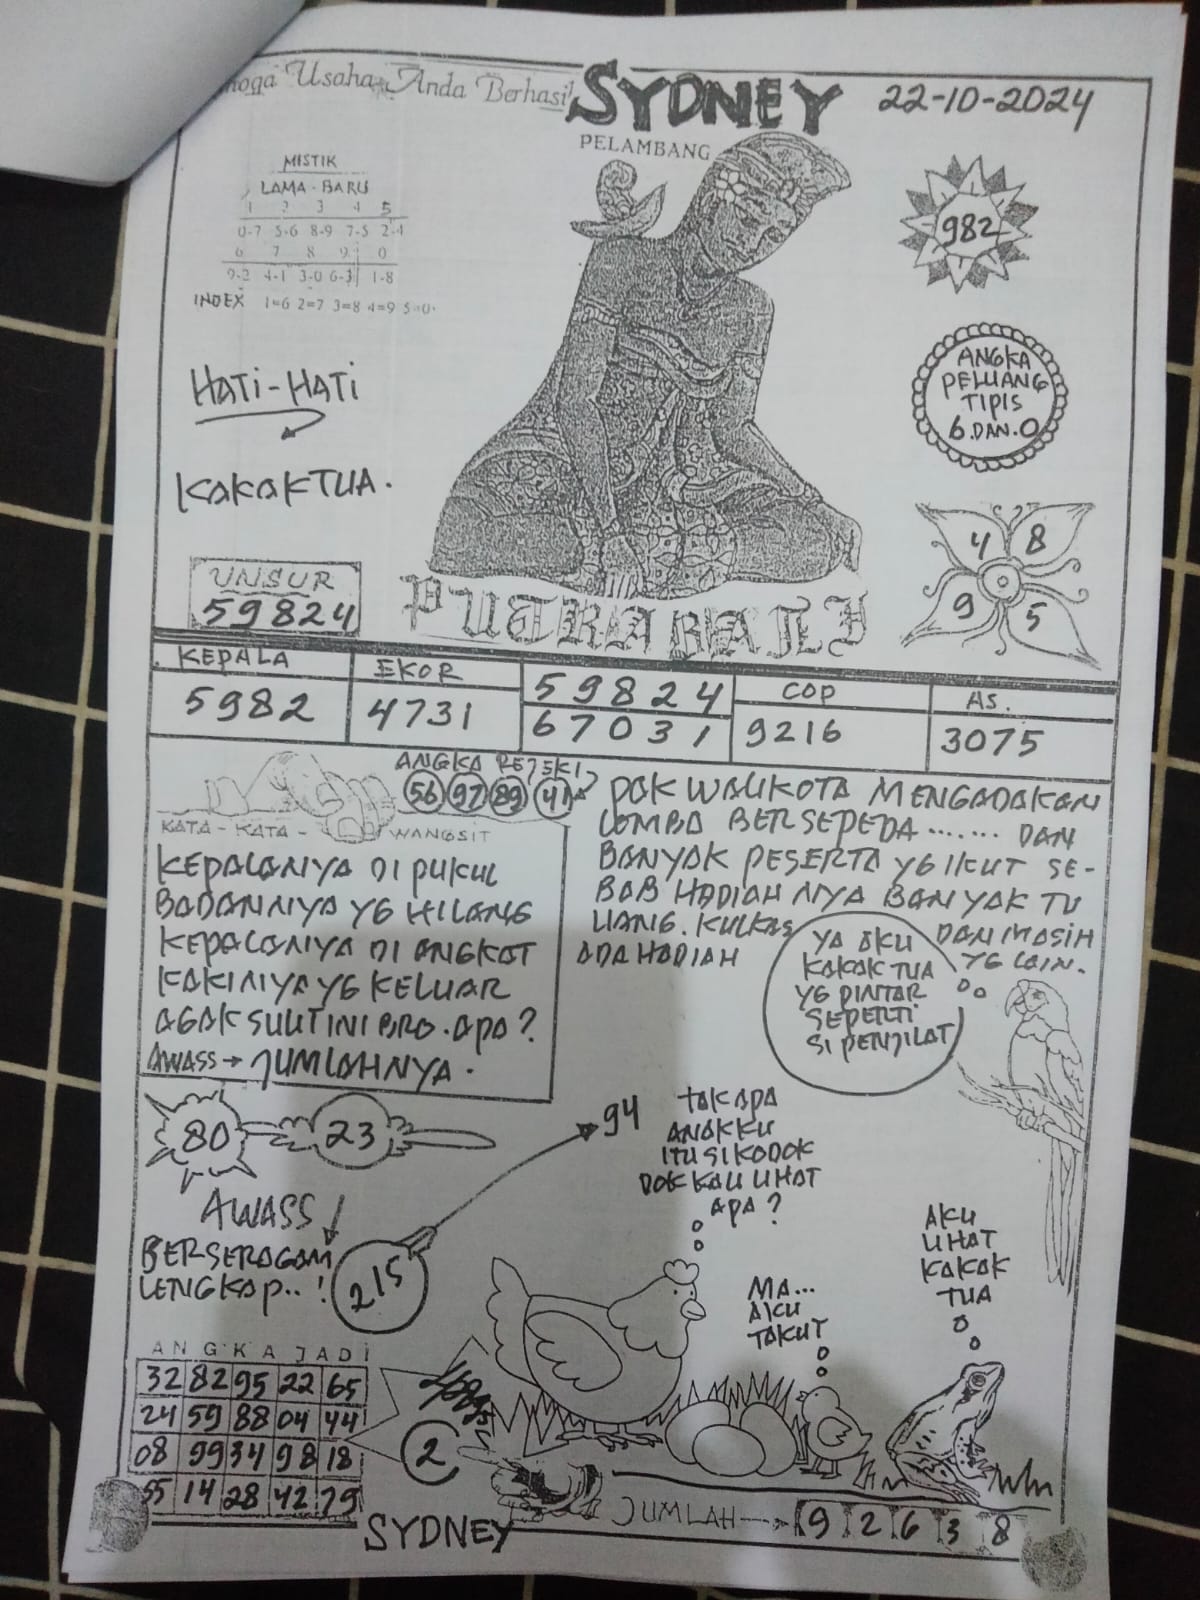 Usaha Anda Berhasil
SYDNEY 22-10-2024
PELAMBANG
MISTIK
LAMA - BARU
1 2 3 4 5
0-7 5-6 8-9 7-5 2-4
6 7 8 9 0
9-2 4-1 3-0 6-3 1-8
INDEX 1=6 2=7 3=8 4=9 5=0
982
ANGKA
PELUANG
TIPIS
6.DAN.0
HATI-HATI
KAKAKTUA.
4 8
9 5
UNSUR
59824
PUTRA BALI
KEPALA
5982
EKOR
4731
59824
67031
COP
9216
AS.
3075
ANGKA REJEKI
56 97 89 41
KATA - KATA - WANGSIT
KEPALANYA DI PUKUL
BADANNYA YG HILANG
KEPALANYA DI ANGKAT
KAKINYA YG KELUAR
AGAK SULIT INI BRO. APA?
AWASS → JUMLAHNYA.
PAK WALIKOTA MENGADAKAN
LOMBA BERSEPEDA ....... DAN
BANYAK PESERTA YG IKUT SE-
BAB HADIAHNYA BANYAK TU
UANG. KULKAS DAN MASIH
ADA HADIAH YG LAIN.
YA AKU
KAKAK TUA
YG PINTAR
SEPERTI
SI PENJILAT
80 23
94
TAK APA
ANAKKU
ITU SI KODOK
DOK KAU LIHAT
APA ?
AWASS
BERSERAGAM
LENGKAP..!
215
MA...
AKU
TAKUT
AKU
LIHAT
KAKAK
TUA
ANGKA JADI
32 82 95 22 65
24 59 88 04 44
08 99 34 98 18
55 14 28 42 79
2
SYDNEY
JUMLAH → 9 2 6 3 8